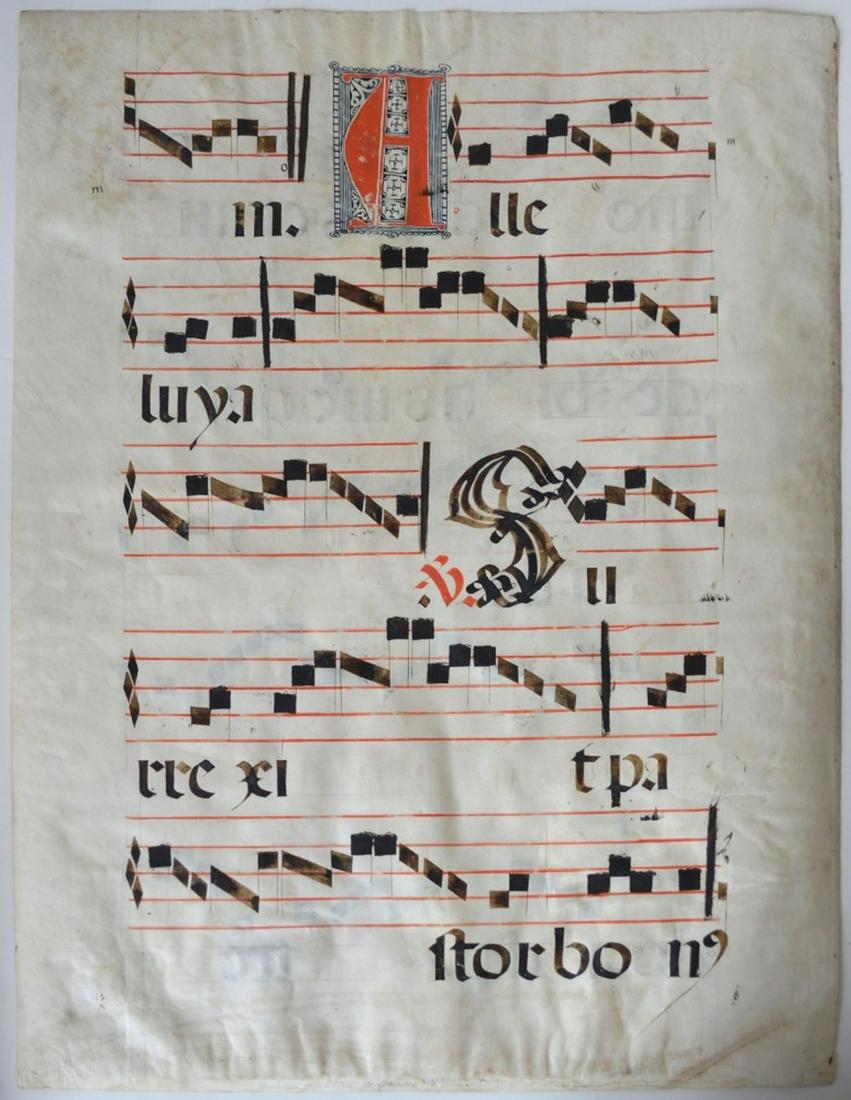 m. A lle
luya
℣. Su
rre xi t pa
stor bo nꝰ